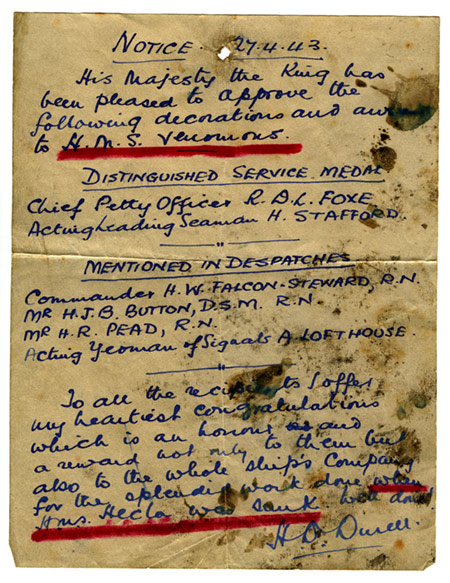 NOTICE. 27.4.43.
His Majesty the King has
been pleased to approve the
following decorations and
to H.M.S. Venomous.
DISTINGUISHED SERVICE MEDAL
Chief Petty Officer R.D.L. FOXE
Acting Leading Seaman H. STAFFORD.
"
MENTIONED IN DESPATCHES
Commander H.W. FALCON-STEWARD, R.N.
MR H.J.B. BUTTON, D.S.M. R.N.
MR H.R. PEAD, R.N.
Acting Yeoman of Signals A LOFTHOUSE.
"
To all the recipients I offer
my heartiest congratulations
which is an honour and
a reward not only to them but
also to the whole ship's company
for the splendid work done when
H.M.S. Hecla was sunk well done
H D Durell.